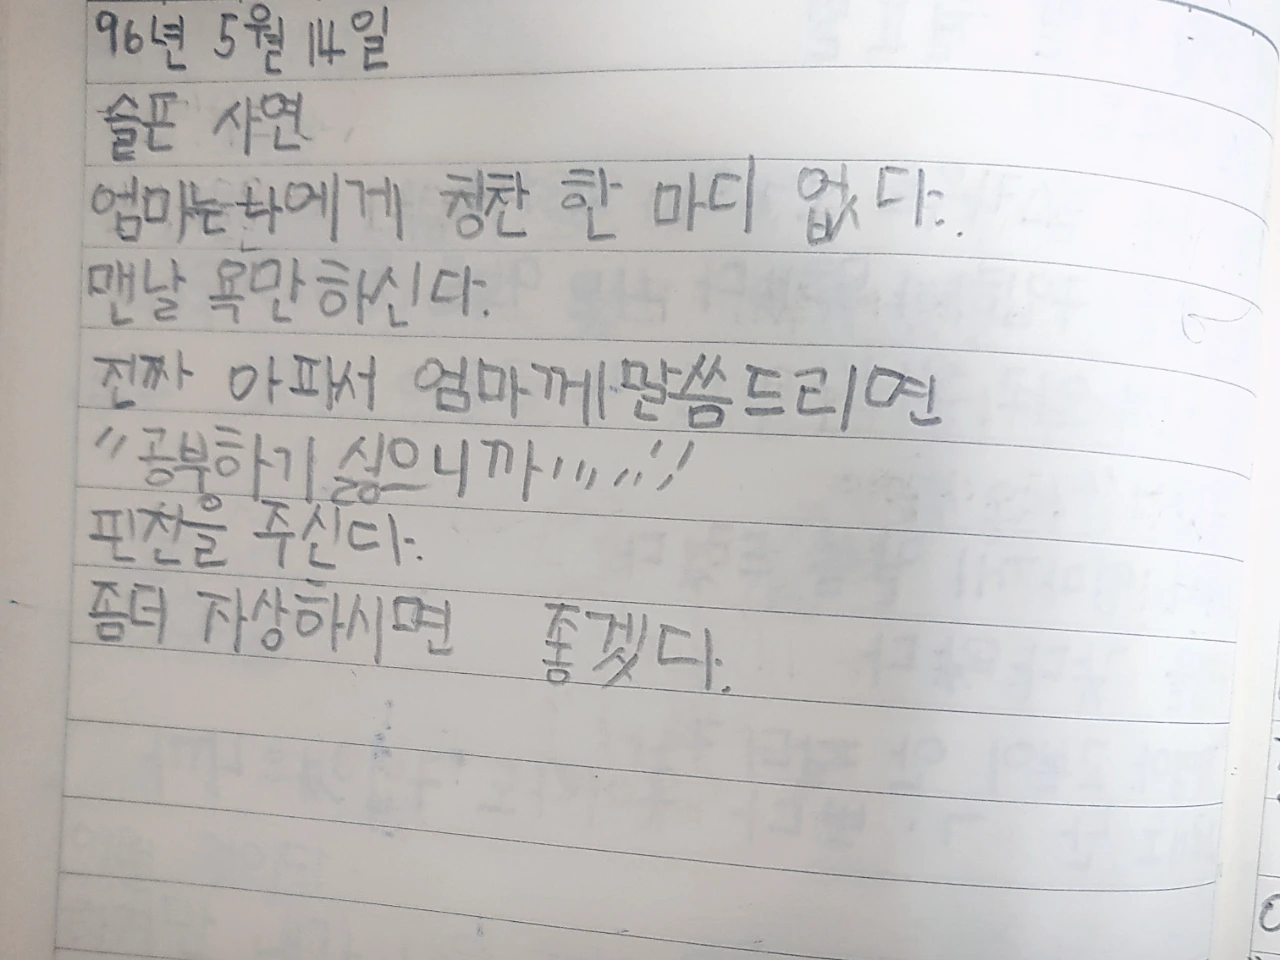 96년 5월 14일
슬픈 사연
엄마는 나에게 칭찬 한 마디 없다.
맨날 욕만 하신다.
진짜 아파서 엄마께 말씀드리면
"공부하기 싫으니까,,,,,,,"
핀찬을 주신다.
좀더 자상하시면 좋겠다.